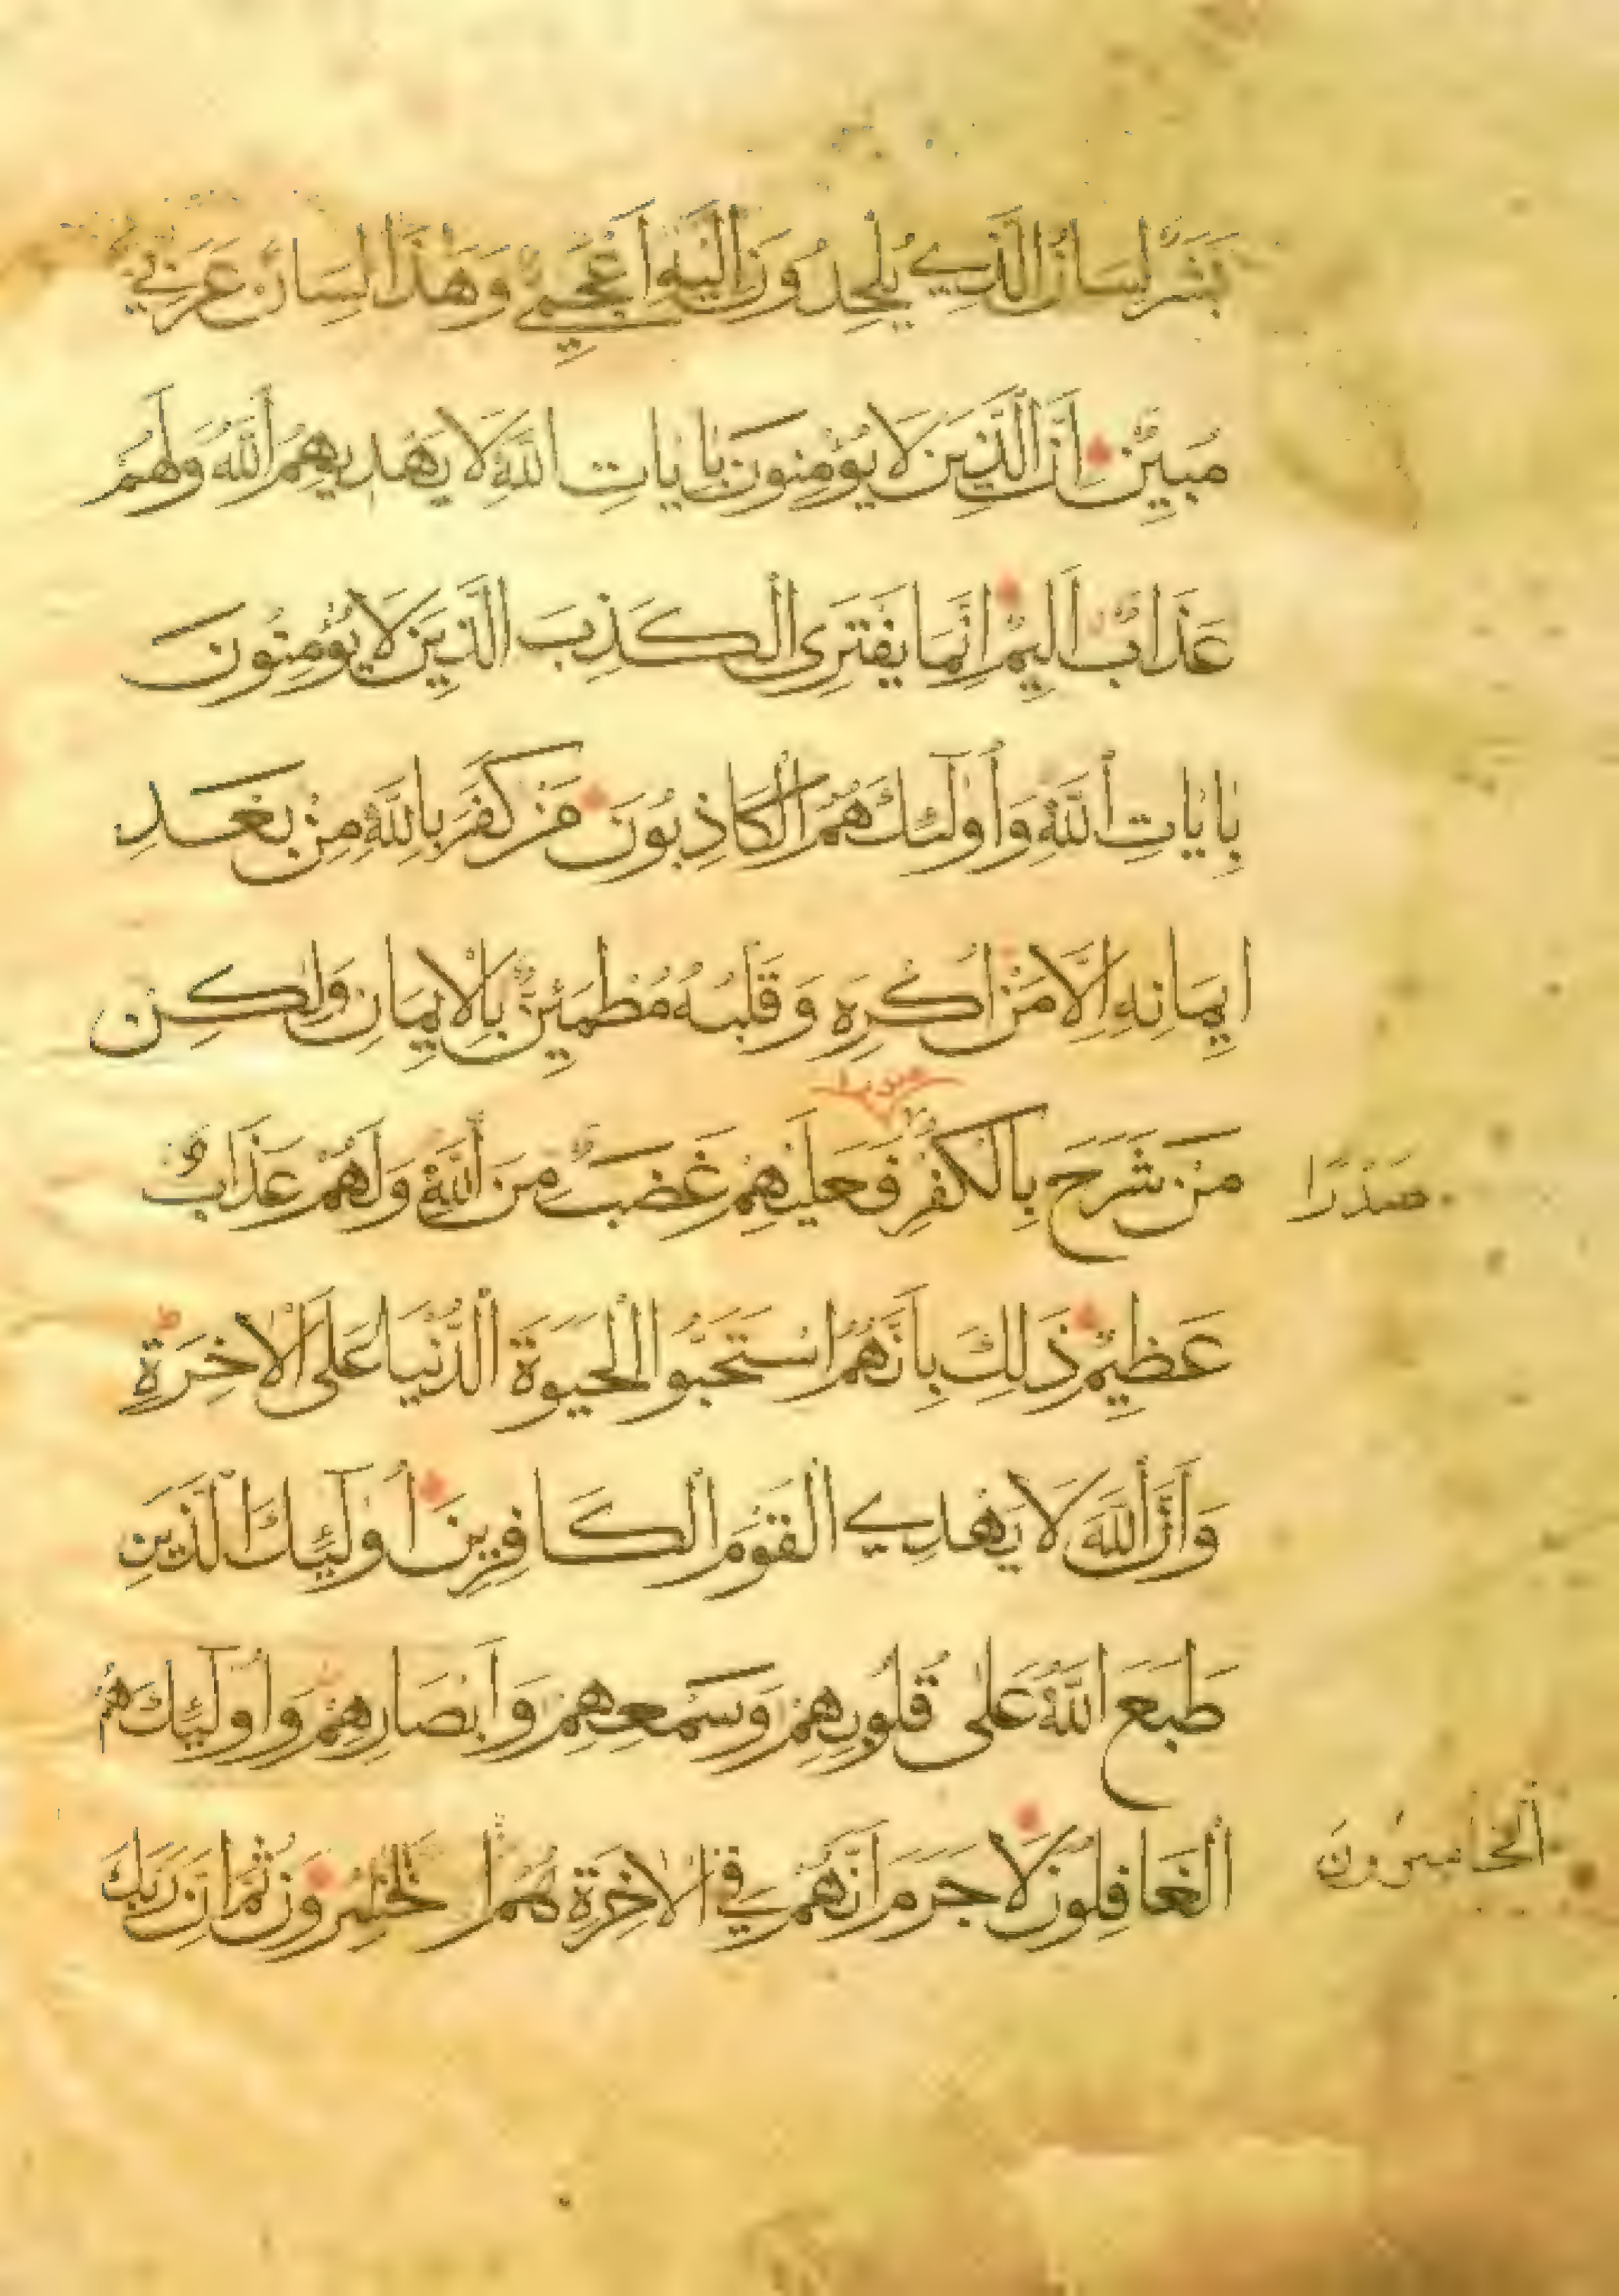 بَشَرٌ لِسَانُ الَّذِي يُلْحِدُونَ اِلَيْهِ اَعْجَمِيٌّ وَهٰذَا لِسَانٌ عَرَبِيٌّ
مُبِينٌ اِنَّ الَّذِينَ لَا يُؤْمِنُونَ بِاٰيَاتِ اللّٰهِ لَا يَهْدِيهِمُ اللّٰهُ وَلَهُمْ
عَذَابٌ اَلِيمٌ اِنَّمَا يَفْتَرِى الْكَذِبَ الَّذِينَ لَا يُؤْمِنُونَ
بِاٰيَاتِ اللّٰهِ وَاُولٰٓئِكَ هُمُ الْكَاذِبُونَ مَنْ كَفَرَ بِاللّٰهِ مِنْ بَعْدِ
اِيمَانِهِ اِلَّا مَنْ اُكْرِهَ وَقَلْبُهُ مُطْمَئِنٌّ بِالْاِيمَانِ وَلٰكِنْ
صدرا
مَنْ شَرَحَ بِالْكُفْرِ فَعَلَيْهِمْ غَضَبٌ مِنَ اللّٰهِ وَلَهُمْ عَذَابٌ
صَدْرًا
عَظِيمٌ ذٰلِكَ بِاَنَّهُمُ اسْتَحَبُّوا الْحَيٰوةَ الدُّنْيَا عَلَى الْاٰخِرَةِ
وَاَنَّ اللّٰهَ لَا يَهْدِي الْقَوْمَ الْكَافِرِينَ اُولٰٓئِكَ الَّذِينَ
طَبَعَ اللّٰهُ عَلٰى قُلُوبِهِمْ وَسَمْعِهِمْ وَاَبْصَارِهِمْ وَاُولٰٓئِكَ هُمُ
الْغَافِلُونَ لَا جَرَمَ اَنَّهُمْ فِي الْاٰخِرَةِ هُمُ الْخٰسِرُونَ ثُمَّ اِنَّ رَبَّكَ
الْخَاسِرُونَ